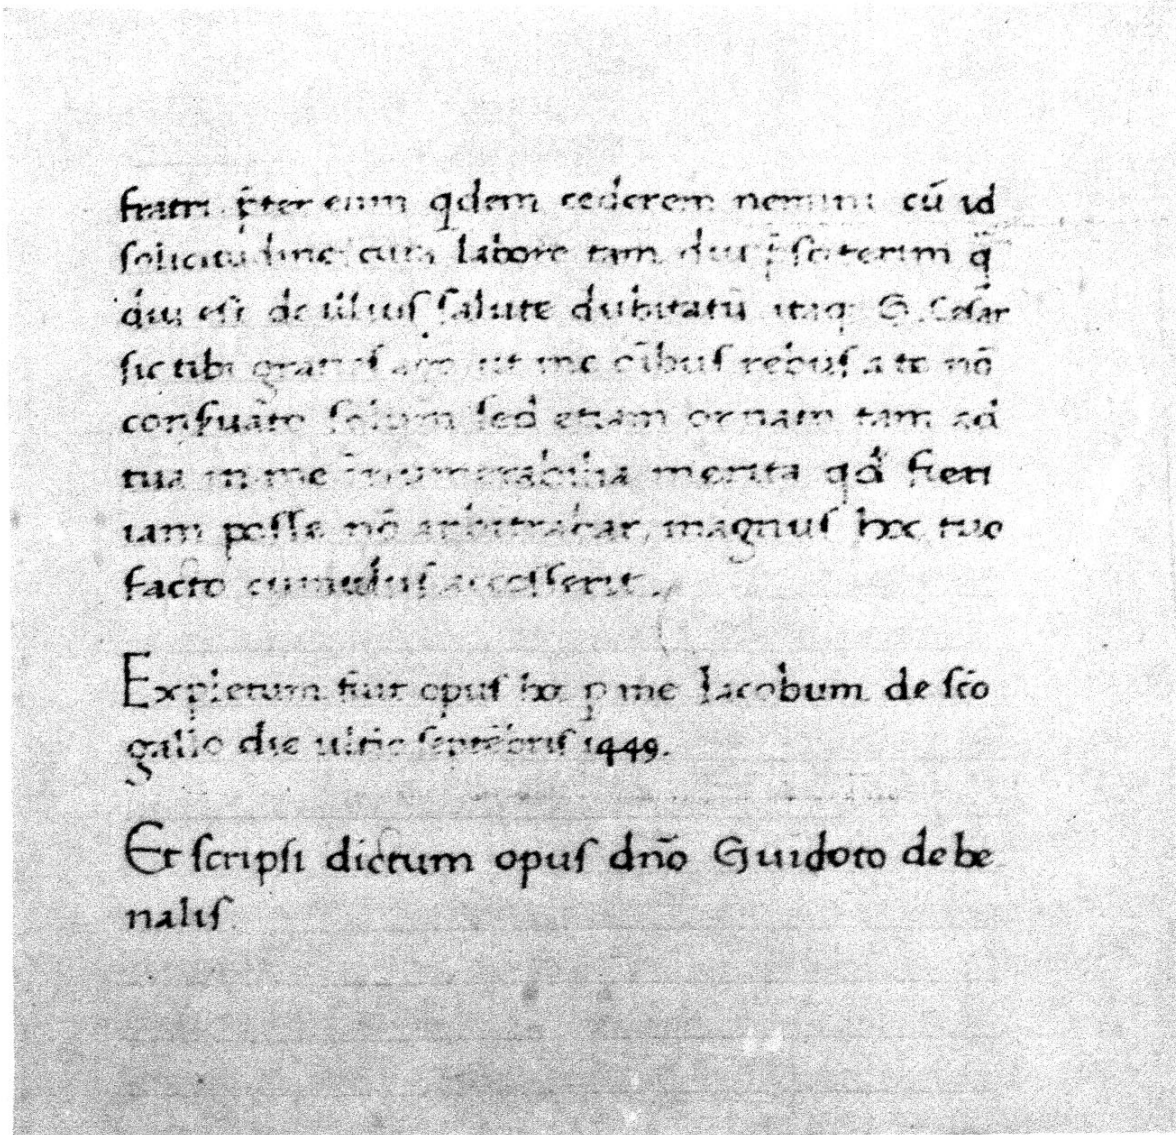 fratri p̄ter eum qdem cederem nemini cū id
solicitudine cura labore tam diu p̄stiterim q̄
diu est de illius salute dubitatū itaq G. Cesar
sic tibi gratias ago ut me oībus rebus a te nō
conseruato solum sed etiam ornato tam ad
tua in me innumerabilia merita qd fieri
iam posse nō arbitrabar, magnus hoc tuo
facto cumulus accesserit.
Expletum fuit opus hoc p me Iacobum de sc̄o
gallo die ultīo septēbris 1449.
Et scripsi dictum opus dn̄o Guidoto de be
nalis.